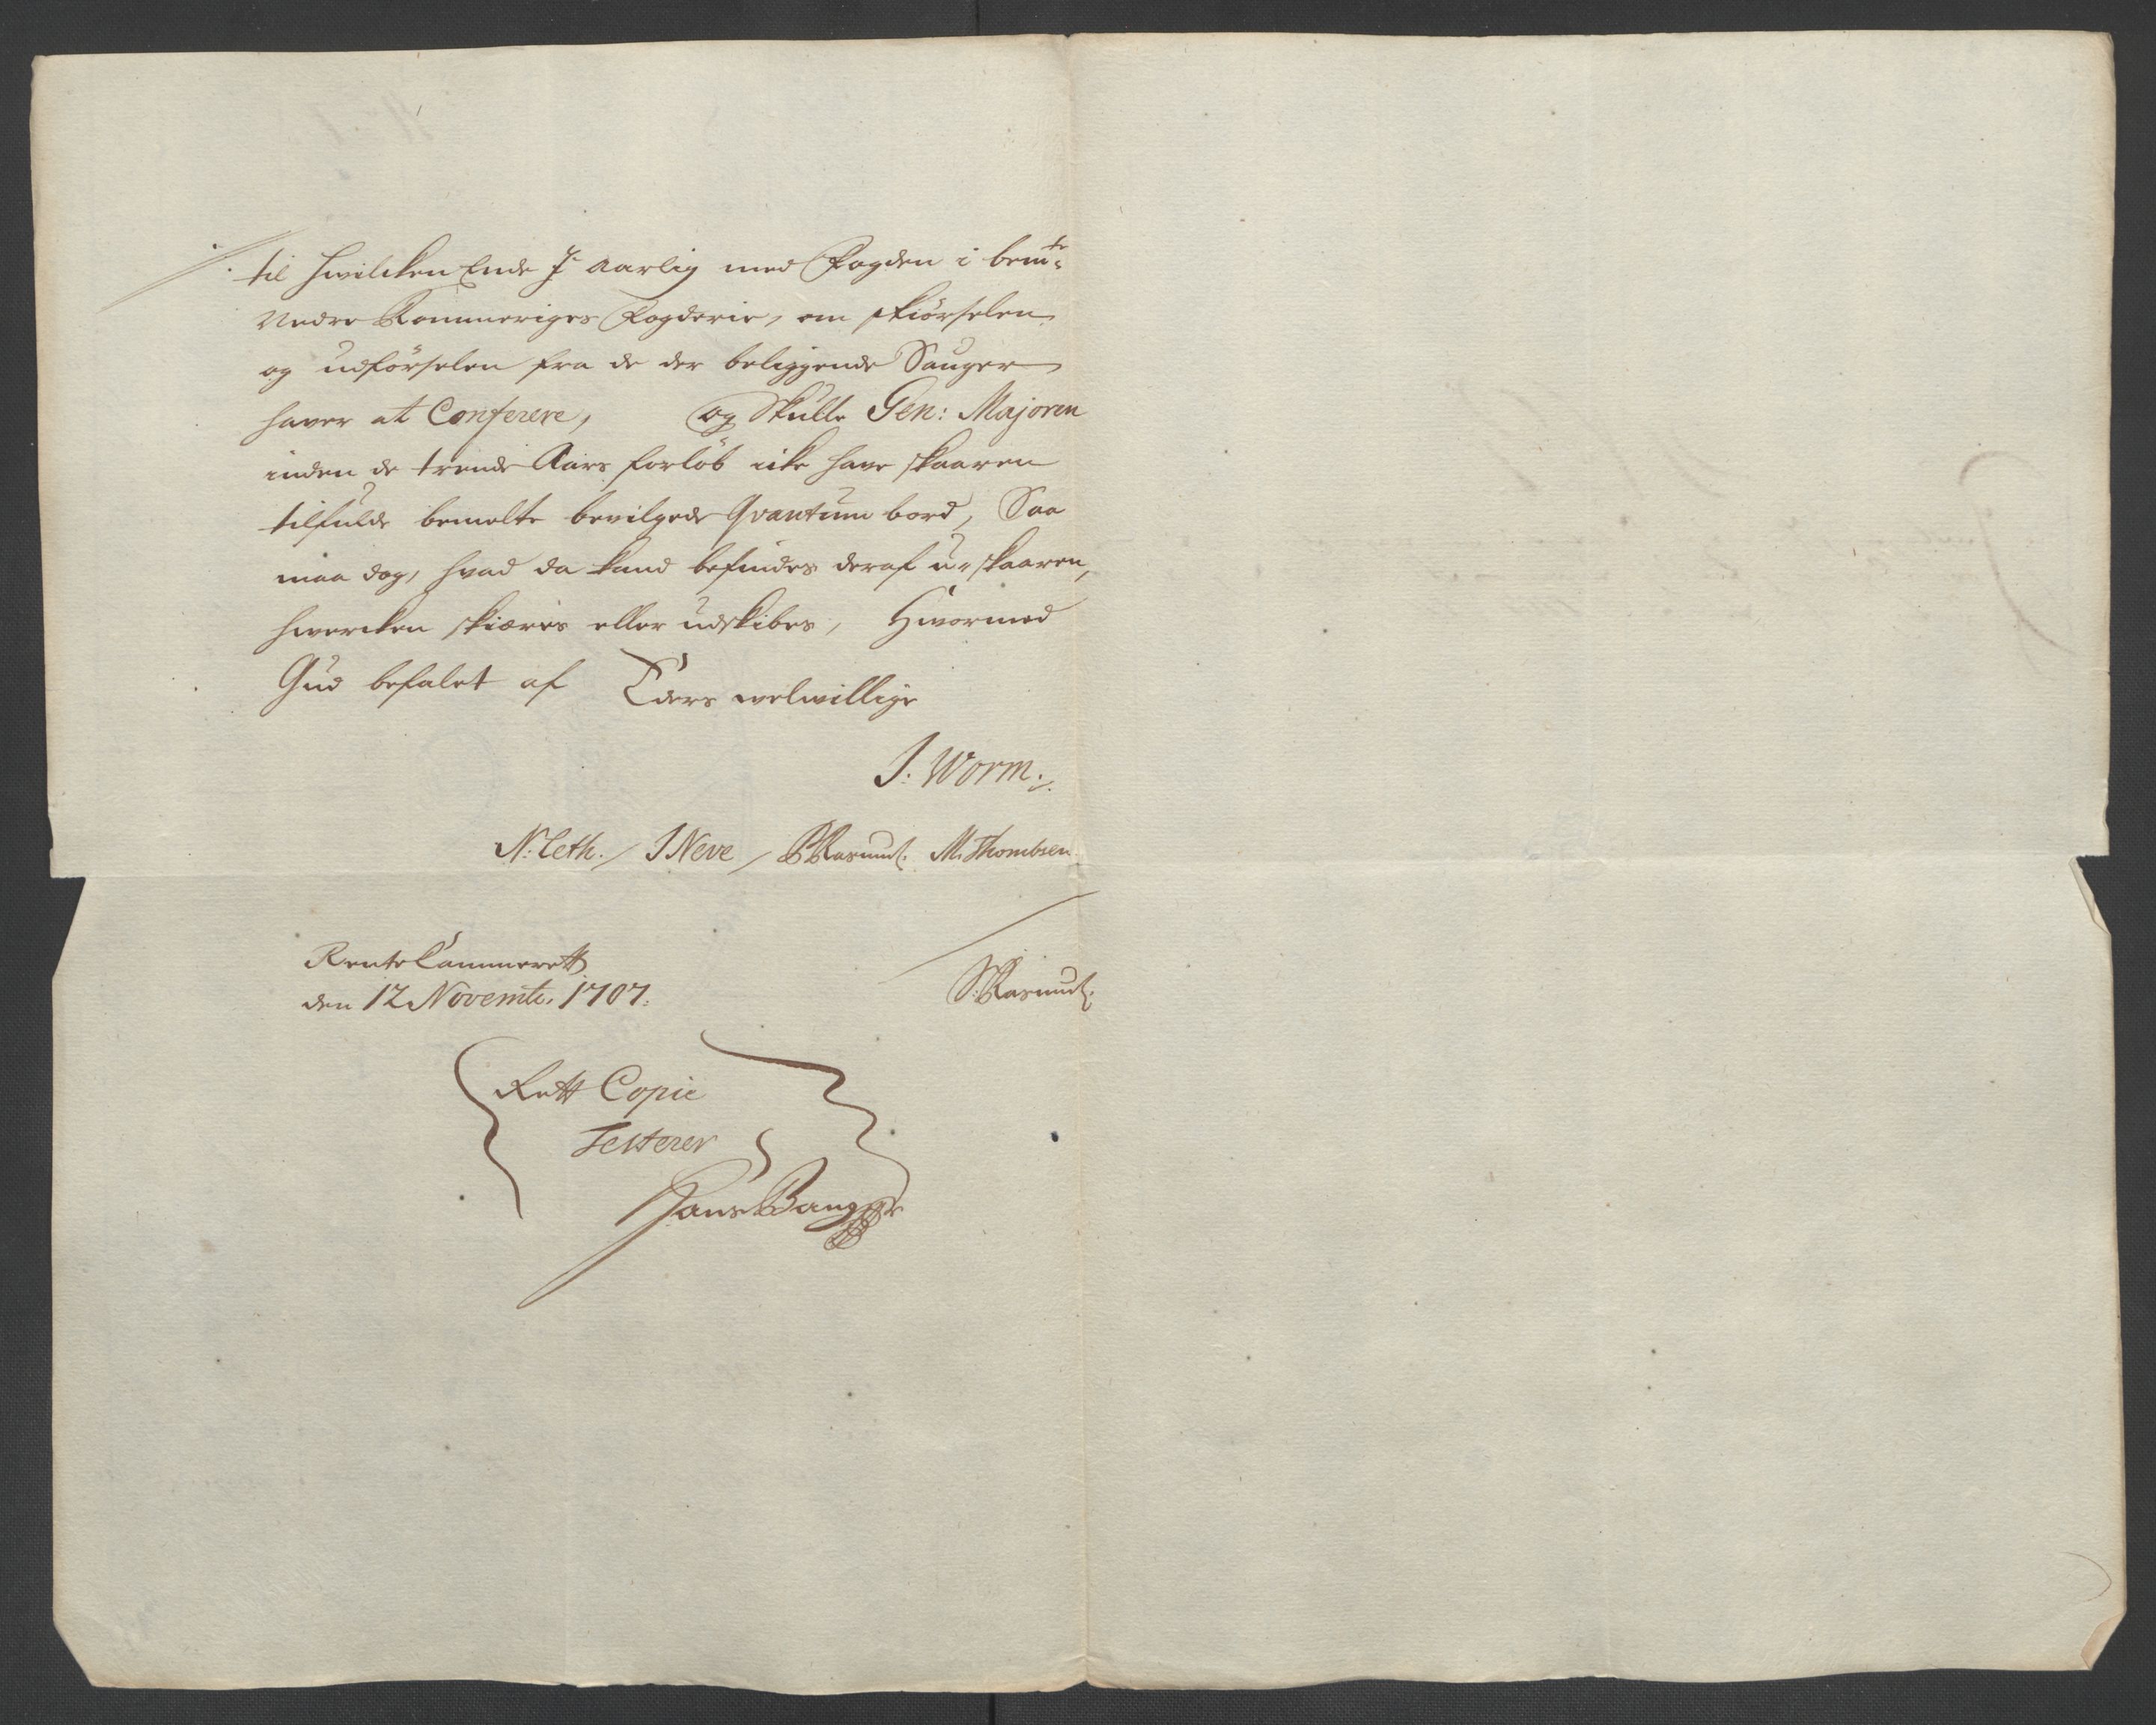 til hvilcken Ende I aarlig med Fogden i bemte
Nedre Rommeriges Fogderie, om skiörselen
og udförselen fra de der beliggende Sauger
haver at Conferere, og Skulle Gen: Majoren
inden de trende Aars forlöb icke have skaaren
tilfulde bemelte bevilgede Qvantum bord, Saa
maa dog, hvad da kand befindes deraf u-skaaren,
hvercken skiæres eller udskibes, Hvormed
Gud befalet af Eders velvillige
J. Worm ./.
N: Leth. / J Neve / Rasmus. M. Thombsen
RenteCammerett
den 12 Novembr. 1707.
S: Rasmus.
Rett Copie
Testerer
Hans Bang